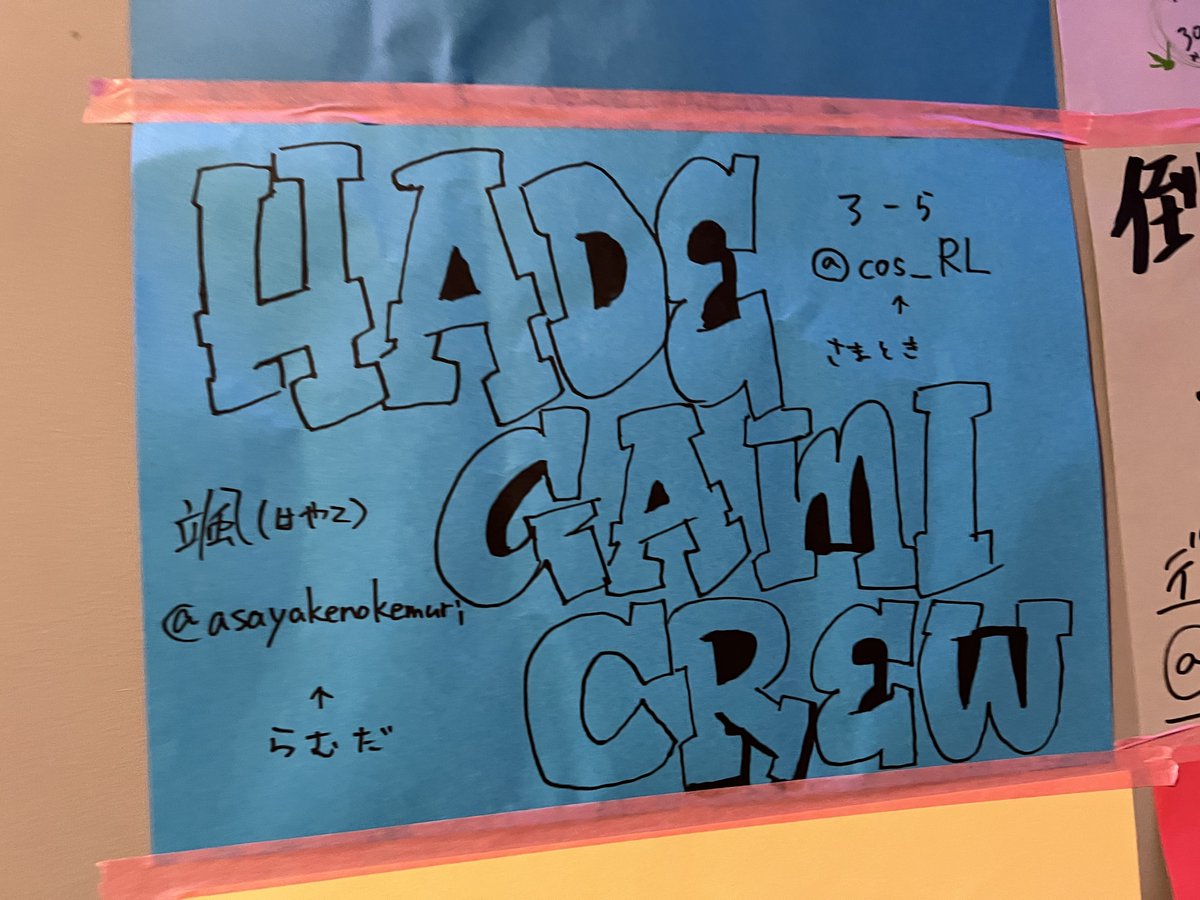 HADE
3-5
@cos_RL
↑
さまとき
GAMI
颯(はやて)
@asayakenokemuri
CREW
↑
らむだ
30
倒
デ
@